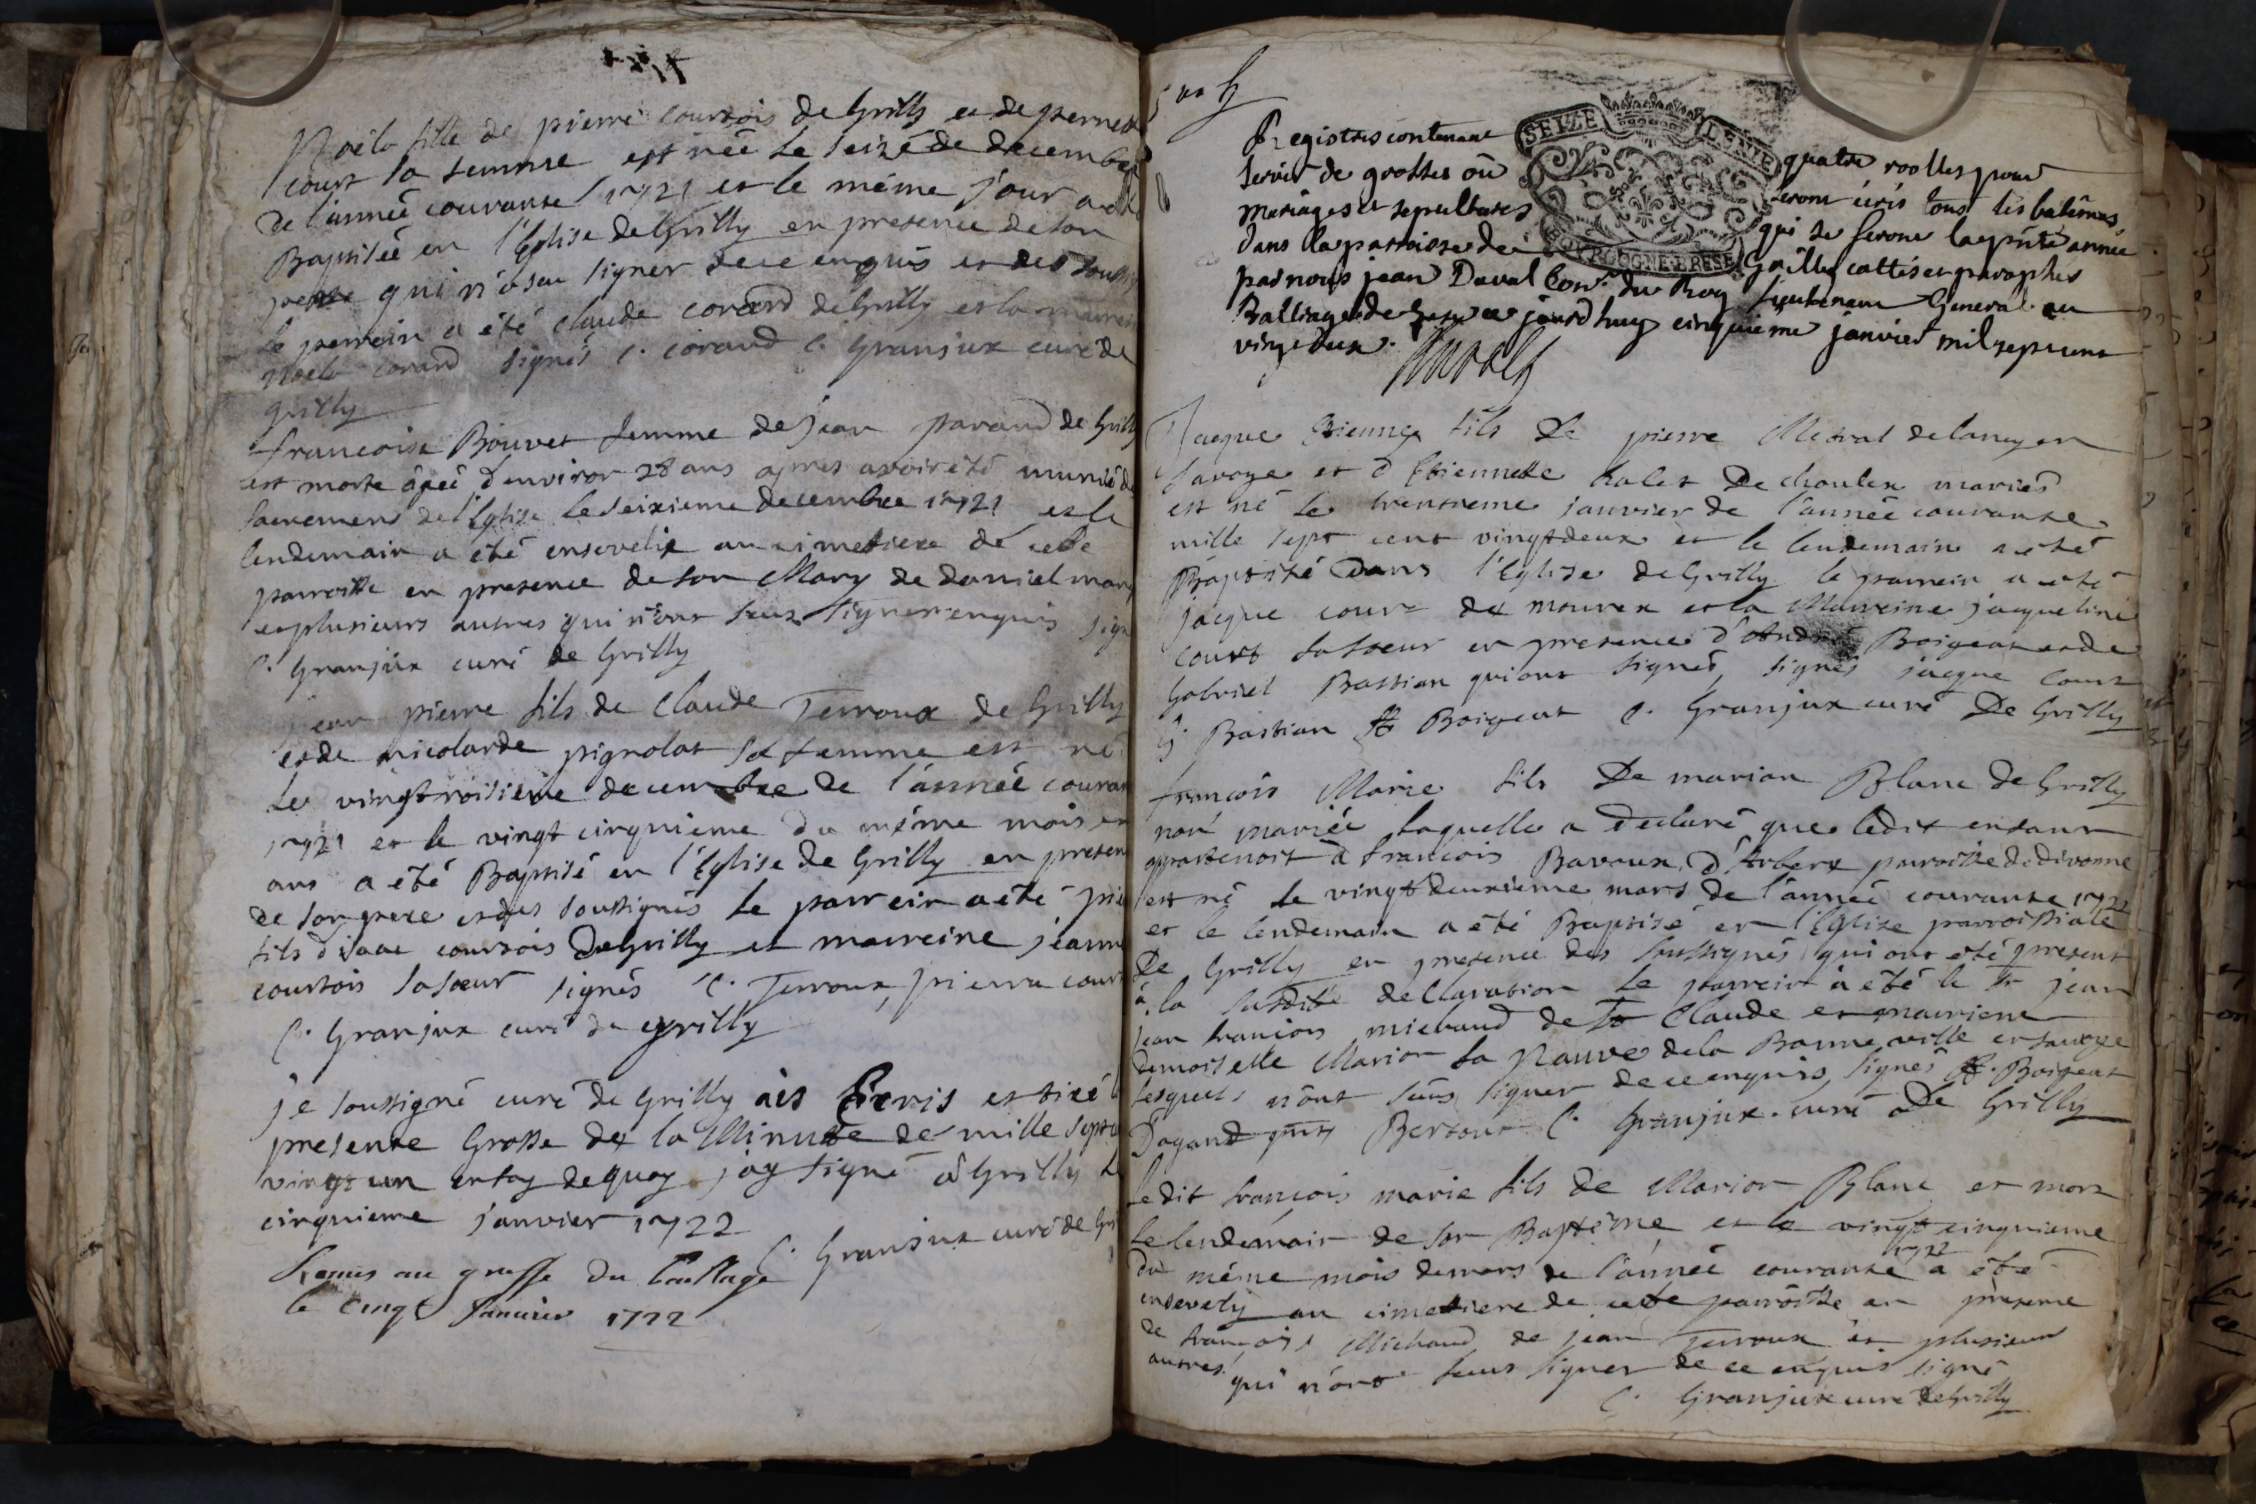 Noela fille de pierre courtois de Grilly et de pernette
court sa femme est née le seize de decembre
de l'année courante 1721 et le même jour a été
Baptisée en l'Eglise de Grilly en presence de son
pere qui n'a seu signer de ce enquis et des soussig
le parrein a été claude corand de Grilly et la marrein
noela corand signés c. corand C. Granjux curé de
grilly
francoise Bouvet femme de jean parand de Grilly
est morte âgée d'environ 28 ans apres avoir été munie de
sacremens de l'Eglise le seixieme decembre 1721 et le
lendemain a été ensevelie au cimetiere de cette
parroisse en presence de son Mary de daniel mary
et plusieurs autres qui n'ont seus signer enquis sign
C. Granjux curé de Grilly
jean pierre fils de Claude Terroux de Grilly
et de nicolarde pignolat sa femme est né
le vingtroisieme decembre de l'année couran
1721 et le vingt cinquieme du même mois en
ans a été Baptisé en l'Eglise de Grilly en presen
de son pere et des soussignés le parrein a été pie
fils d'isaac courtois de Grilly et marreine jeanne
courtois sa sœur signés C. Terroux, pierre court
C. Granjux curé de Grilly
je soussigné curé de Grilly ais Ecris et tiré l
presente Grosse de la Minute de mille septce
vingt un en foy de quoy j'ay signé a Grilly le
cinquieme janvier 1722
C. Granjux curé de Gri
Remis au greffe du Bailliage
le cinqe Janvier 1722
Registres contenant quatre roolles pour
servir de grosses où seront écris tous les batêmes,
mariages et sepultures qui se feront la pnte année
dans la parroisse de Grilly cottés et paraphés
par nous jean Duval Conr. du Roy Lieutenant General au
Balliage de Gex ce jourd'huy cinquieme janvier mil sept cent
vingt deux.
Jacque Etienne fils de pierre Medral de lancy en
savoye et d'Etiennette de choulex mariés
est né le trentieme janvier de l'année courante
mille sept cent vingtdeux et le lendemain a été
Baptisé Dans l'Eglise de Grilly le parrein a été
jacque court de mourex et la Marreine jacqueline
court sa sœur en presence d'André Boigeat et de
Gabriel Bastian qui ont signés, signés jacque Court
G. Bastian A Boigeat C. Granjux curé De Grilly
francois Marie fils De marion Blanc de Grilly
non mariée laquelle a declaré que ledit enfant
appartenoit à francois Bavoux d'Arbere parroisse de divonne
est né le vingtdeuxieme mars de l'année courante 1722
et le lendemain a été Baptisé en l'Eglise parroissiale
De Grilly en presence des soussignés qui ont été present
à la susdite declaration le parrein a été le Sr jean
jean francois michaud de St Claude et marriene
demoiselle Marion la Nauve de la Bonne ville en savoye
lesquels n'ont seus signer de ce enquis, signés A. Boigeat
Dagand Bertout C. Granjux curé De Grilly
Ledit francois marie fils de Marion Blanc et mort
le lendemain de son Baptême et le vingt cinquieme
du même mois de mars de l'année courante 1722 a été
ensevely au cimetiere de cette parroisse en presence
de francois Michaud de jean Terroux et plusieur
autres qui n'ont seus signer de ce enquis signé
C. Granjux curé de Grilly
SEIZE
LENIE
BOURGOGNE BRESSE